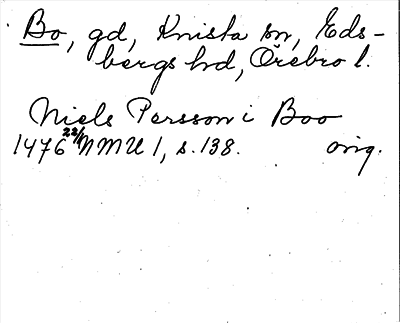 Bo, gd, Knista sn, Eds-
bergs hd, Örebro l.
Niels Persson i Boo
1476 22/1 NMU 1, s. 138. orig.